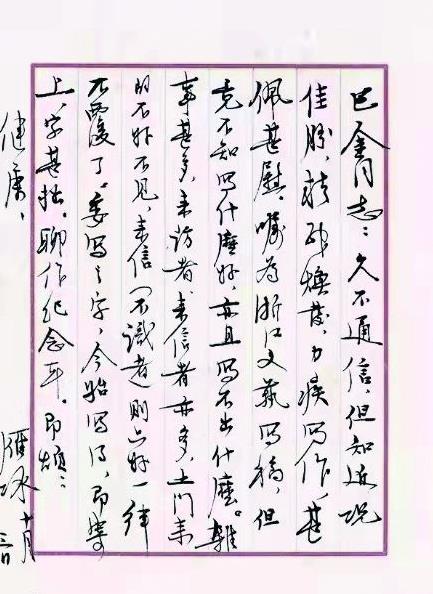 巴金同志：久不通信，但知近况
佳胜，精神焕发，力疾写作，甚
佩甚慰。嘱为浙江文艺写稿，但
竟不知写什麽好，亦且写不出什麽。杂
事甚多，来访者来信者亦多，上门来
的不好不见，来信（不识者）则只好一律
不覆了。委写之字，今始写得，即寄
上，字甚拙。聊作纪念耳。即颂：
健康，
雁冰 十月